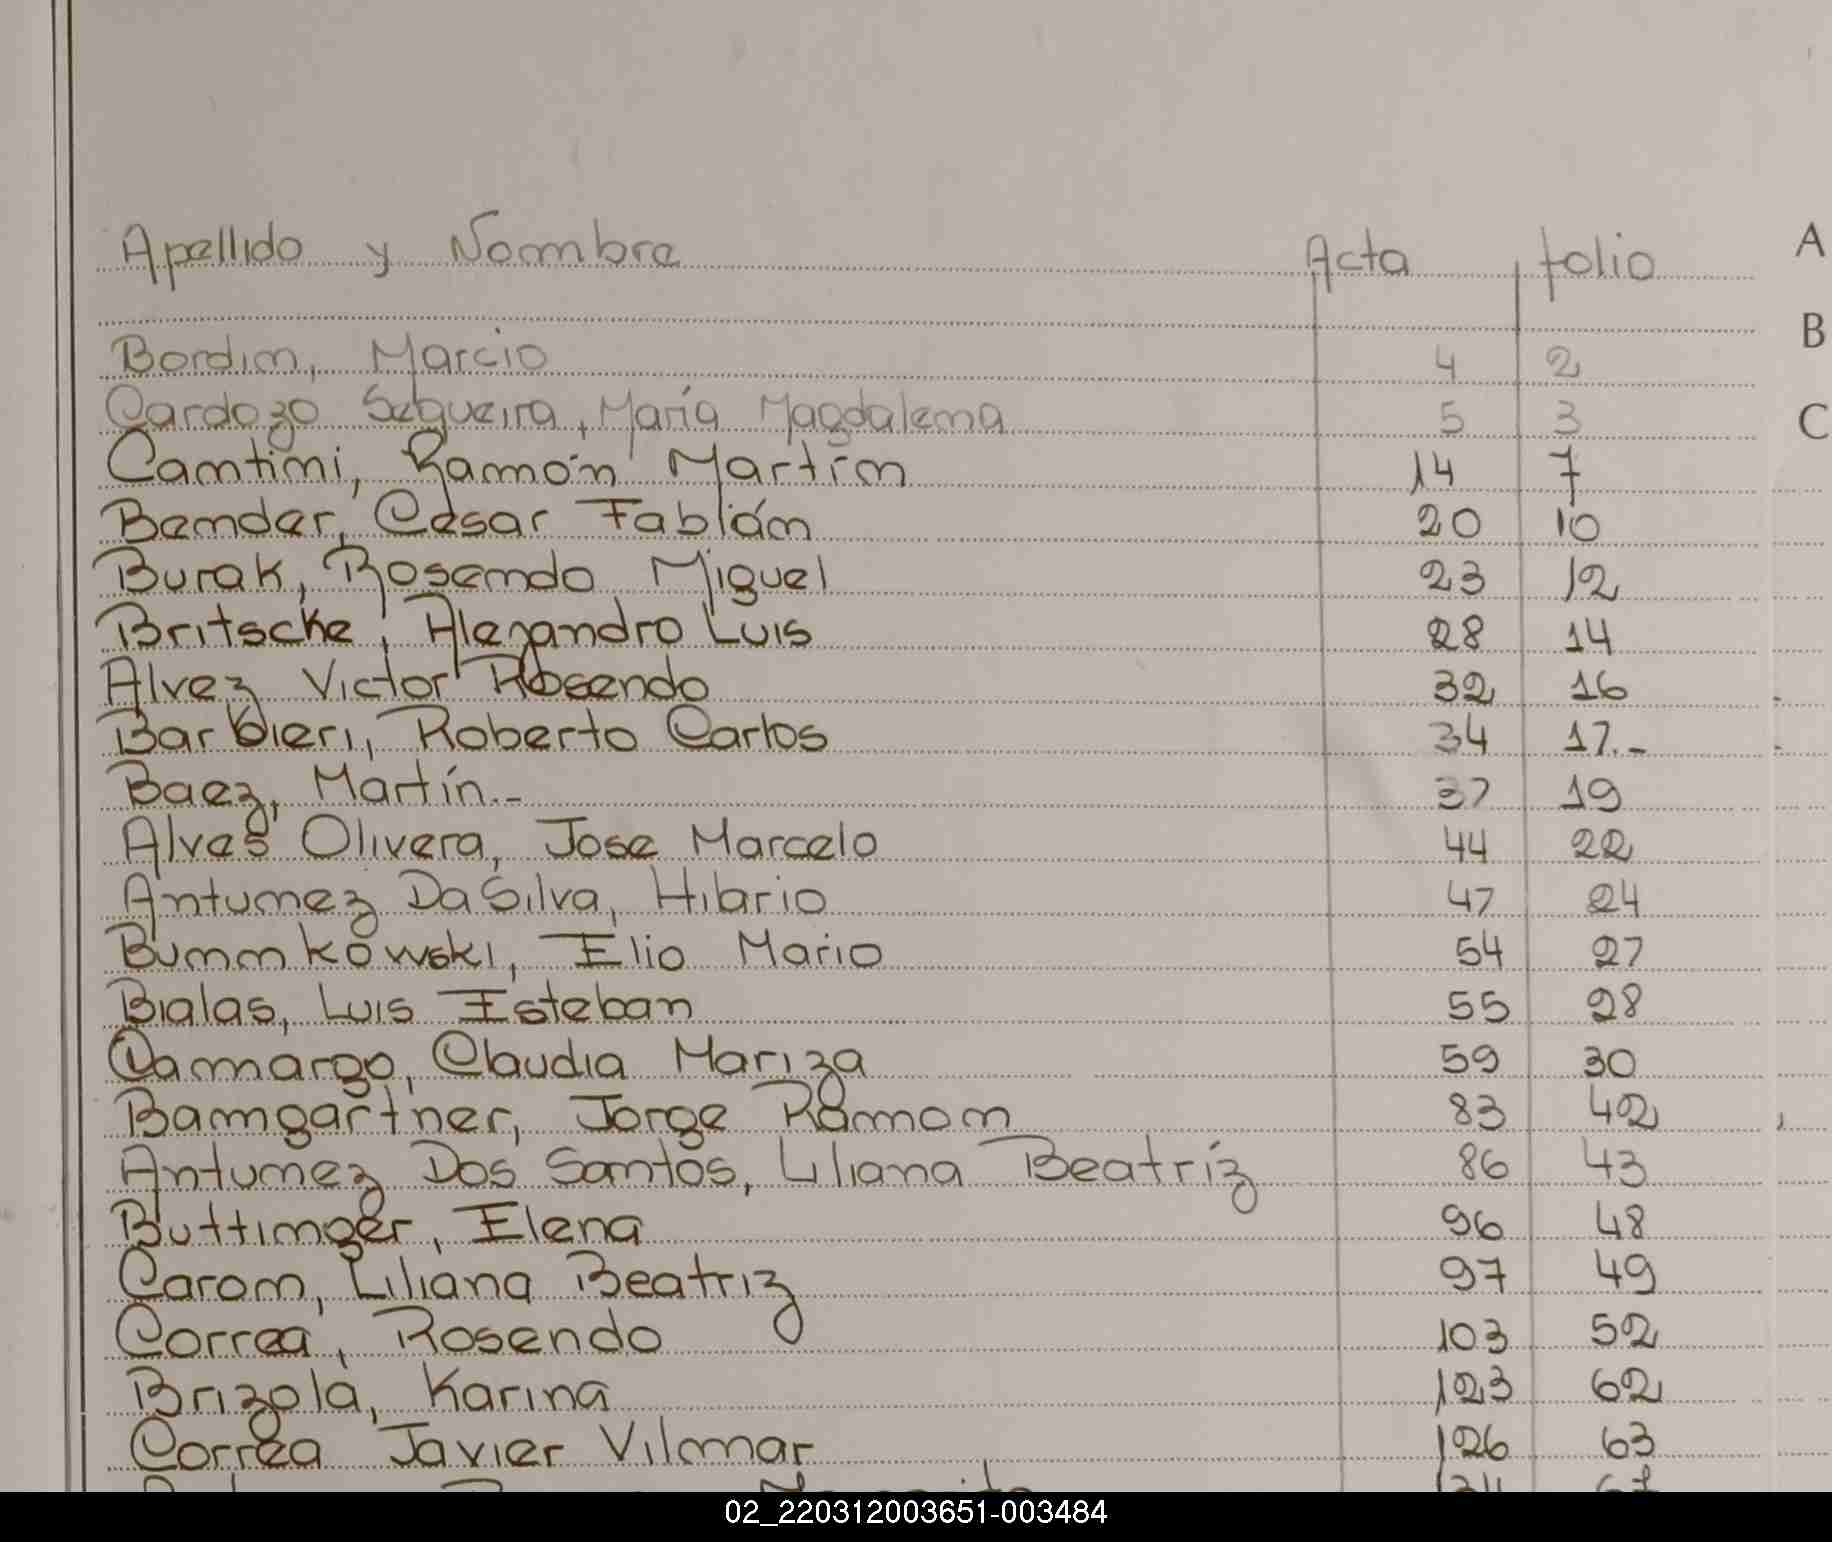 Apellido y Nombre Acta folio A
B
Bordin, Marcio 4 2
Cardozo Segueira, María Magdalena 5 3 C
Cantini, Ramón Martín 14 7
Bender, Cesar Fabián 20 10
Burak, Rosendo Miguel 23 12
Britscke, Alejandro Luis 28 14
Alvez Victor Rosendo 32 16
Barbieri, Roberto Carlos 34 17.-
Baez, Martín.- 37 19
Alves Olivera, Jose Marcelo 44 22
Antunez Da Silva, Hilario 47 24
Bunnkowski, Elio Mario 54 27
Bialas, Luis Esteban 55 28
Camargo, Claudia Mariza 59 30
Bamgartner, Jorge Ramon 83 42
Antunez Dos Santos, Liliana Beatríz 86 43
Buttinger, Elena 96 48
Caron, Liliana Beatriz 97 49
Correa, Rosendo 103 52
Brizola, Karina 123 62
Correa Javier Vilmar 126 63
02_220312003651-003484